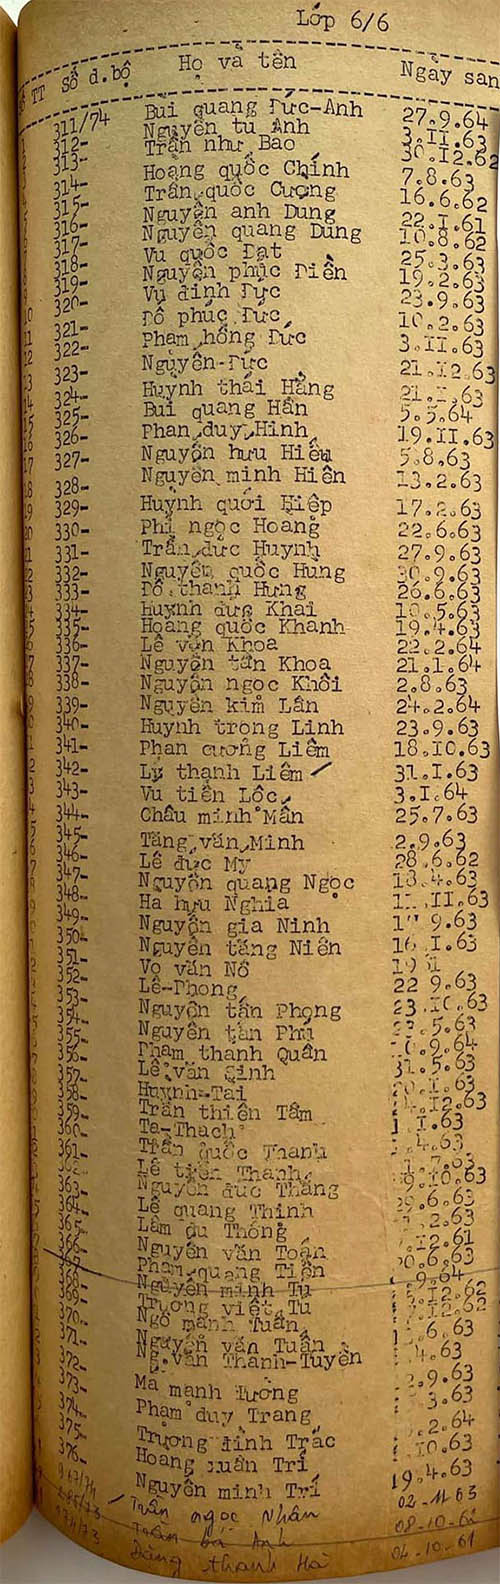 Lớp 6/6
TT Số d.bộ Họ và tên Ngày san
311/74 Bùi quang Đức-Anh 27.9.64
312- Nguyễn tú Anh 3.II.63
313- Trần như Bảo 30.I2.62
314- Hoàng quốc Chính 7.8.63
315- Trần quốc Cường 16.6.62
316- Nguyễn anh Dũng 22.I.61
317- Nguyễn quang Dũng 10.8.62
318- Vũ quốc Đạt 25.3.63
319- Nguyễn phúc Điền 19.2.63
320- Vũ đình Đức 23.9.63
321- Đỗ phúc Đức 10.2.63
322- Phạm hồng Đức 3.II.63
323- Nguyễn-Đức 21.I2.63
324- Huỳnh thái Hằng 21.I.63
325- Bùi quang Hân 5.5.64
326- Phan duy Hinh 19.II.63
327- Nguyễn hữu Hiếu 5.8.63
328- Nguyễn minh Hiền 13.2.63
329- Huỳnh quới Hiệp 17.2.63
330- Phí ngọc Hoàng 22.6.63
331- Trần đức Huynh 27.9.63
332- Nguyễn quốc Hùng 30.9.63
333- Đỗ thanh Hưng 26.6.63
334- Huỳnh Khai 10.5.63
335- Hoàng quốc Khánh 19.4.63
336- Lê văn Khoa 22.2.64
337- Nguyễn tấn Khoa 21.1.64
338- Nguyễn ngọc Khôi 2.8.63
339- Nguyễn kim Lân 24.2.64
340- Huỳnh trọng Linh 23.9.63
341- Phan cường Liêm 18.I0.63
342- Lý thanh Liêm 31.I.63
343- Vũ tiến Lộc 3.I.64
344- Châu minh Mẫn 25.7.63
345- Tăng văn Minh 2.9.63
346- Lê đức Mỹ 28.6.62
347- Nguyễn quang Ngọc 18.4.63
348- Hà hữu Nghĩa II.63
349- Nguyễn gia Ninh 9.63
350- Nguyễn tăng Niên 16.I.63
351- Võ văn Nô 19
352- Lê-Phong 22 9.63
353- Nguyễn tấn Phong 23.I0.63
354- Nguyễn tấn Phú 5.63
355- Phạm thanh Quân 9.64
356- Lê văn Sinh 31.5.63
357- Huỳnh-Tài I.63
358- Trần thiện Tâm I2.63
359- Tạ-Thạch I.63
360- Trần quốc Thanh 4.63
361- Lê tiến Thành 7.63
362- Nguyễn đức Thắng 9.I0.63
363- Lê quang Thịnh 29.6.63
364- Lâm du Thống 2.63
365- Nguyễn văn Toản I2.61
366- Phan quang Tiến 20.6.63
367- Nguyễn minh Tú 9.64
368- Trương việt Tú I2.62
369- Ngô mạnh Tuấn I2.62
370- Nguyễn văn Tuấn 6.63
371- Ng.văn Thanh-Tuyền 4.63
372- Mã mạnh Tường 9.63
373- Phạm duy Trang 3.63
374- Trương đình Trắc 2.64
375- Hoàng xuân Trí I0.63
376- Nguyễn minh Trí 19.4.63
Trần ngọc Nhân 02-11-63
Trần bá Anh 08-10-62
Đặng thanh Hà 04-10-61